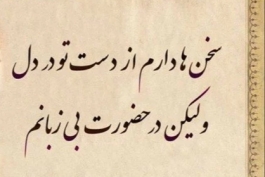 سخن ها دارم از دست تو در دل
ولیکن در حضورت بی زبانم